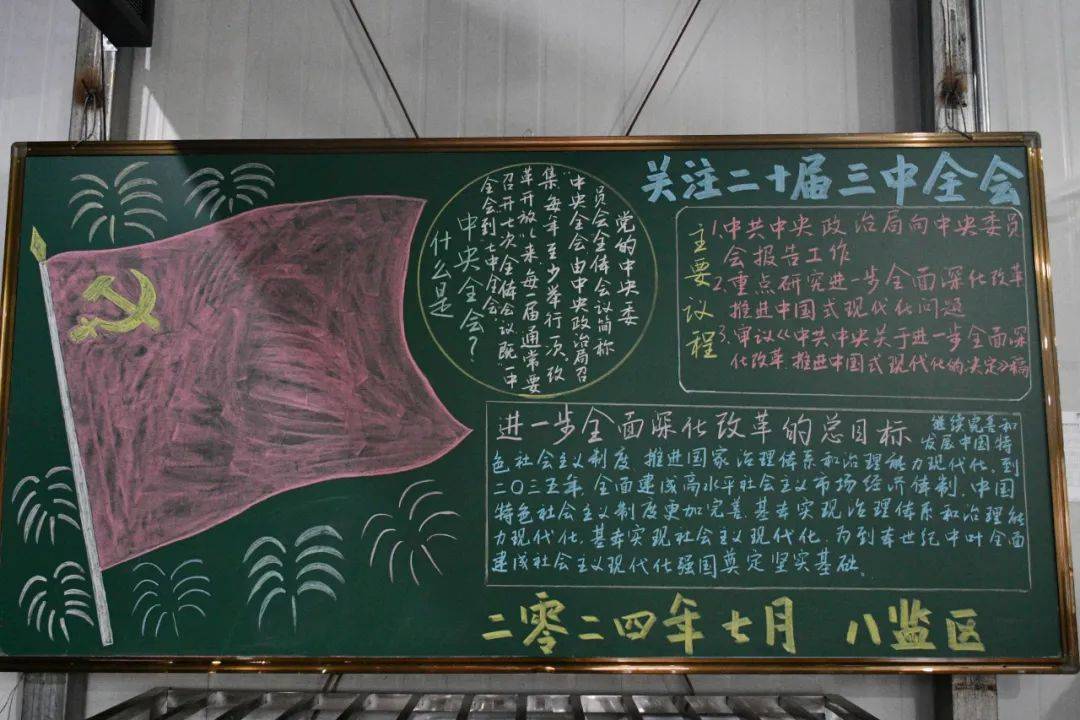 关注二十届三中全会
什么是
中央全会？
党的中央委
员会全体会议简称
“中央全会”由中央政治局召
集，每年至少举行一次，改
革开放以来，每一届通常要
召开七次全体会议，既“一中
全会”到“七中全会”
主要议程
1.中共中央政治局向中央委员
会报告工作
2.重点研究进一步全面深化改革
推进中国式现代化问题
3.审议《中共中央关于进一步全面深
化改革 推进中国式现代化的决定》稿
进一步全面深化改革的总目标
继续完善和
发展中国特
色社会主义制度，推进国家治理体系和治理能力现代化.到
二〇三五年，全面建成高水平社会主义市场经济体制，中国
特色社会主义制度更加完善，基本实现治理体系和治理能
力现代化，基本实现社会主义现代化，为到本世纪中叶全面
建成社会主义现代化强国奠定坚实基础。
二零二四年七月 八监区